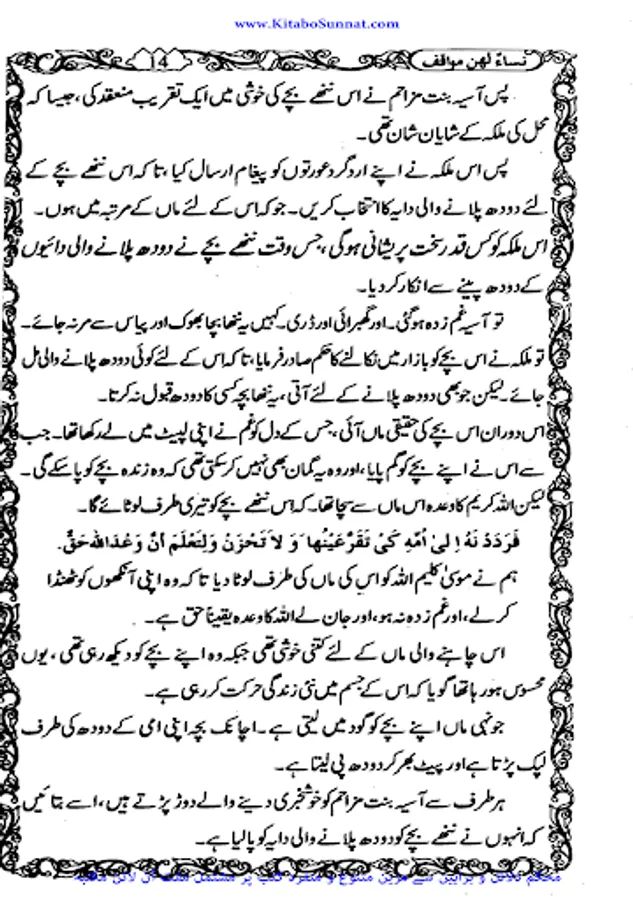 www.KitaboSunnat.com
نساءٌ لھن مواقف
14
پس آسیہ بنت مزاحم نے اس ننھے بچے کی خوشی میں ایک تقریب منعقد کی، جیسا کہ
محل کی ملکہ کے شایان شان تھی۔
پس اس ملکہ نے اپنے اردگرد عورتوں کو پیغام ارسال کیا، تاکہ اس ننھے بچے کے
لئے دودھ پلانے والی دایہ کا انتخاب کریں۔ جو کہ اس کے لئے ماں کے مرتبہ میں ہوں۔
اس ملکہ کو کس قدر سخت پریشانی ہوگی، جس وقت ننھے بچے نے دودھ پلانے والی دائیوں
کے دودھ پینے سے انکار کر دیا۔
تو آسیہ غم زدہ ہوگئی۔ اور گھبرائی اور ڈری۔ کہیں یہ ننھا بچا بھوک اور پیاس سے مر نہ جائے۔
تو ملکہ نے اس بچے کو بازار میں نکالنے کا حکم صادر فرمایا، تاکہ اس کے لئے کوئی دودھ پلانے والی مل
جائے۔ لیکن جو بھی دودھ پلانے کے لئے آتی، یہ ننھا بچہ کسی کا دودھ قبول نہ کرتا۔
اس دوران اس بچے کی حقیقی ماں آئی، جس کے دل کو غم نے اپنی لپیٹ میں لے رکھا تھا۔ جب
سے اس نے اپنے بچے کو گم پایا، اور وہ یہ گمان بھی نہیں کرسکتی تھی کہ وہ زندہ بچے کو پاسکے گی۔
لیکن اللہ کریم کا وعدہ اس ماں سے سچا تھا۔ کہ اس ننھے بچے کو تیری طرف لوٹائے گا۔
فَرَدَدْ نَهُ اِلیٰ اُمِّهِ کَیْ تَقَرَّعَیْنُها وَ لاَ تَحْزَنْ وَلِتَعْلَمَ اَنَّ وَعْدَاللهِ حَقٌّ۔
ہم نے موسیٰ کلیم اللہ کو اس کی ماں کی طرف لوٹا دیا تاکہ وہ اپنی آنکھوں کو ٹھنڈا
کرلے، اور غم زدہ نہ ہو، اور جان لے اللہ کا وعدہ یقیناً حق ہے۔
اس چاہنے والی ماں کے لئے کتنی خوشی تھی جبکہ وہ اپنے بچے کو دیکھ رہی تھی، یوں
محسوس ہورہا تھا گویا کہ اس کے جسم میں نئی زندگی حرکت کر رہی ہے۔
جونہی ماں اپنے بچے کو گود میں لیتی ہے۔ اچانک بچہ اپنی امی کے دودھ کی طرف
لپک پڑتا ہے اور پیٹ بھر کر دودھ پی لیتا ہے۔
ہر طرف سے آسیہ بنت مزاحم کو خوشخبری دینے والے دوڑ پڑتے ہیں، اسے بتائیں
کہ انہوں نے ننھے بچے کو دودھ پلانے والی دایہ کو پالیا ہے۔
محکم دلائل و براہین سے مزین متنوع و منفرد کتب پر مشتمل مفت آن لائن مکتبہ